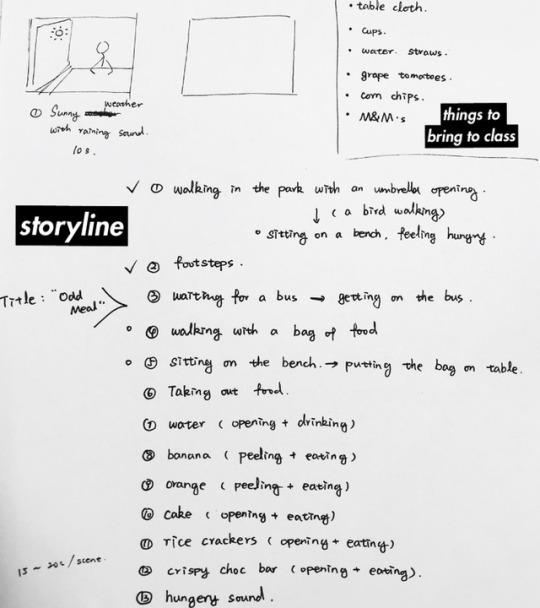 ① Sunny weather
with raining sound.
10s.
• table cloth.
• cups.
• water straws.
• grape tomatoes.
• corn chips.
• M&M's
things to
bring to class
storyline
✓ ① walking in the park with an umbrella opening.
↓ (a bird walking)
° sitting on a bench, feeling hungry.
✓ ② footsteps.
Title: "Odd
Meal"
③ waiting for a bus → getting on the bus.
° ④ walking with a bag of food
° ⑤ sitting on the bench. → putting the bag on table.
⑥ Taking out food.
⑦ water (opening + drinking)
⑧ banana (peeling + eating)
⑨ orange (peeling + eating)
⑩ cake (opening + eating)
⑪ rice crackers (opening + eating)
⑫ crispy choc bar (opening + eating).
⑬ hungery sound.
15 ~ 20s/scene.